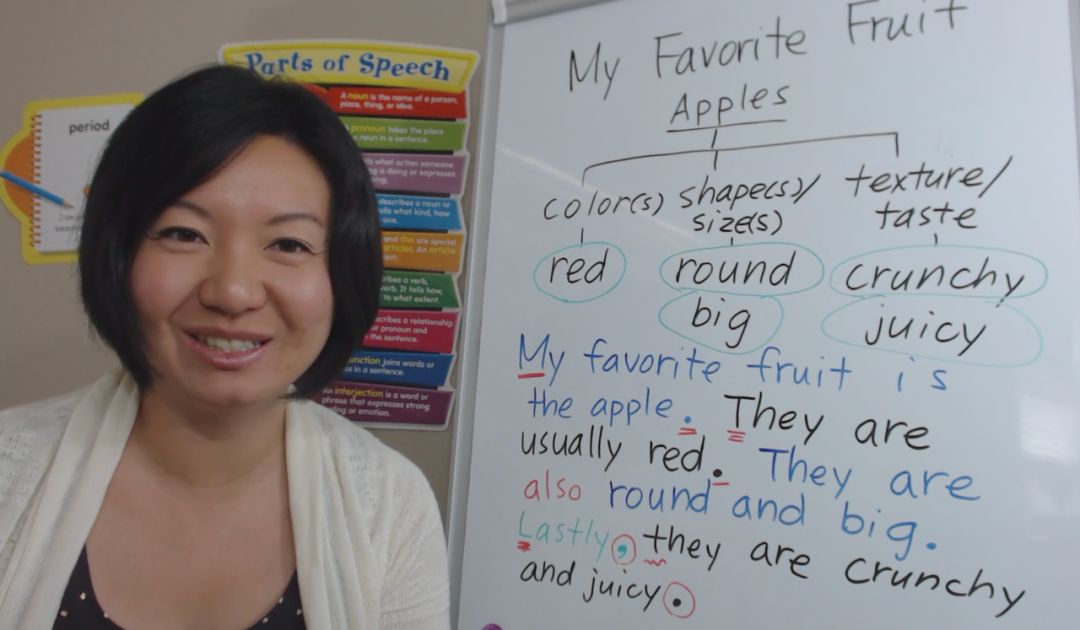 My Favorite Fruit
Apples
color(s) shape(s)/ texture/
size(s) taste
red round crunchy
big juicy
My favorite fruit is
the apple. They are
usually red. They are
also round and big.
Lastly, they are crunchy
and juicy.
Parts of Speech
A noun is the name of a person,
place, thing, or idea.
pronoun takes the place
noun in a sentence.
what action someone
is doing or expresses
describes a noun or
tells what kind, how
one.
and the are special
articles. An article
noun.
a verb,
verb. It tells how,
to what extent.
describes a relationship
or pronoun and
the sentence.
joins words or
in a sentence.
An interjection is a word or
phrase that expresses strong
or emotion.
period